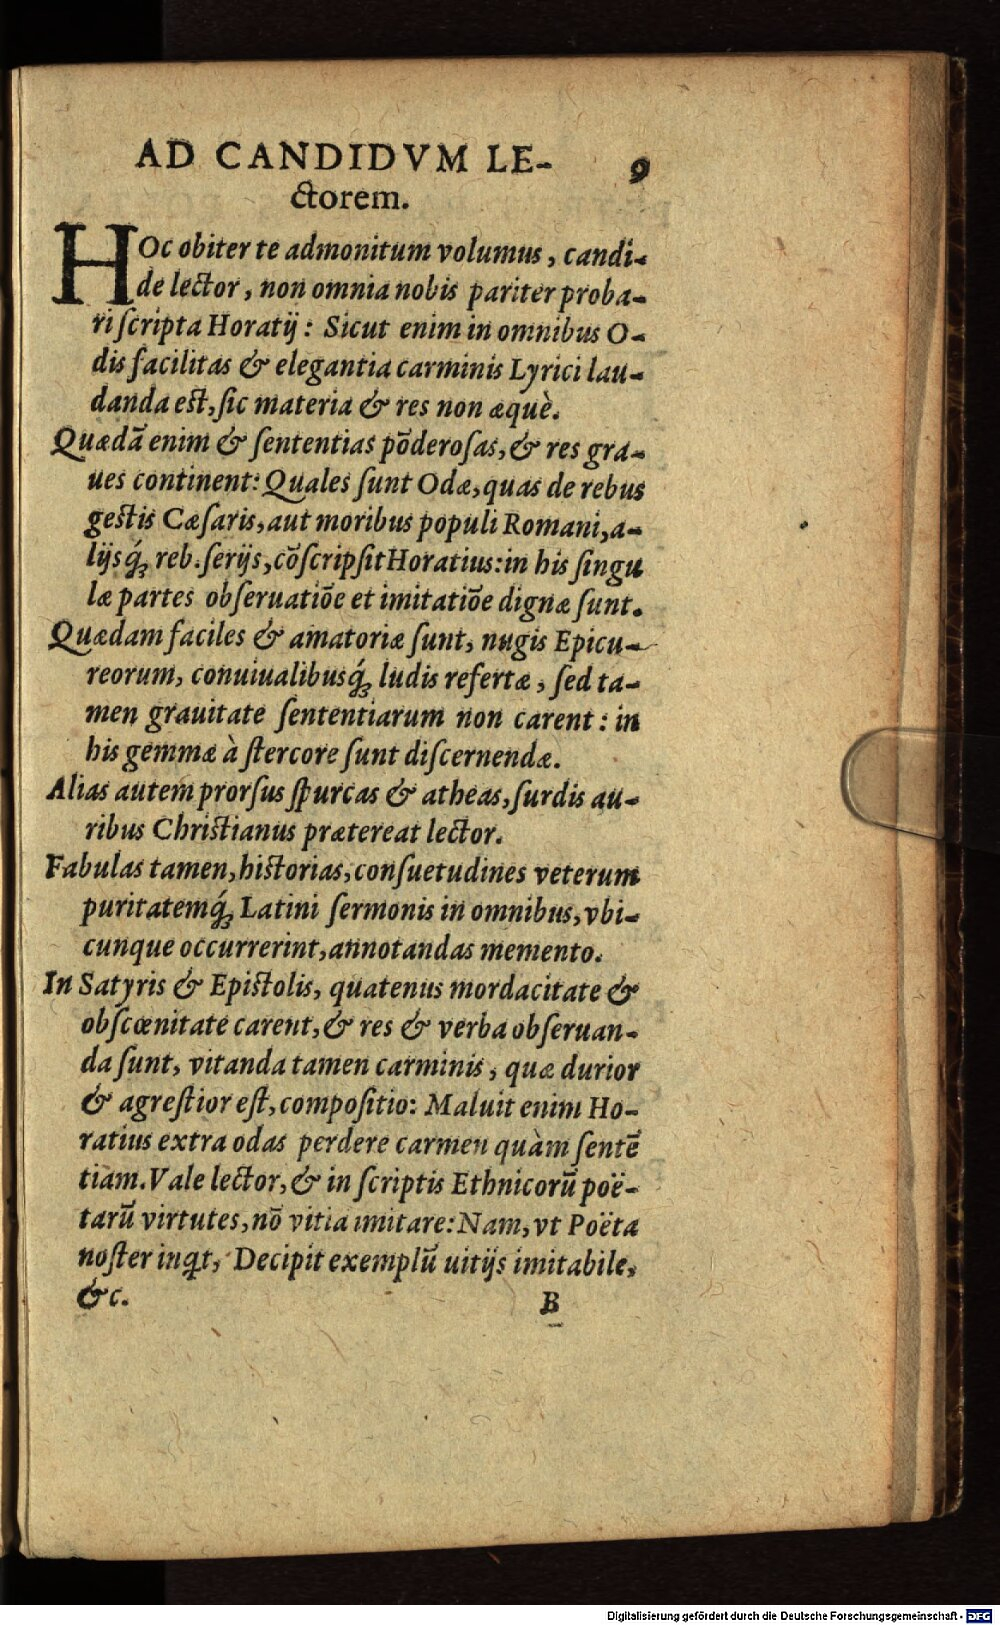 AD CANDIDVM LE-
9
ctorem.
HOc obiter te admonitum volumus, candi-
de lector, non omnia nobis pariter proba-
ri ſcripta Horatij: Sicut enim in omnibus O-
dis facilitas & elegantia carminis Lyrici lau-
danda eſt, ſic materia & res non æquè.
Quædã enim & ſententias põderoſas, & res gra-
ues continent: Quales ſunt Odæ, quas de rebus
geſtis Cæſaris, aut moribus populi Romani, a-
lijsq́; reb. ſerijs, cõſcripſit Horatius: in his ſingu
læ partes obſeruatiõe et imitatiõe dignæ ſunt.
Quædam faciles & amatoriæ ſunt, nugis Epicu-
reorum, conuiualibusq́; ludis refertæ, ſed ta-
men grauitate ſententiarum non carent: in
his gemmæ à ſtercore ſunt diſcernendæ.
Alias autem prorſus ſpurcas & atheas, ſurdis au-
ribus Chriſtianus prætereat lector.
Fabulas tamen, hiſtorias, conſuetudines veterum
puritatemq́; Latini ſermonis in omnibus, vbi-
cunque occurrerint, annotandas memento.
In Satyris & Epiſtolis, quatenus mordacitate &
obſcœnitate carent, & res & verba obſeruan-
da ſunt, vitanda tamen carminis, quæ durior
& agreſtior eſt, compoſitio: Maluit enim Ho-
ratius extra odas perdere carmen quàm ſentẽ
tiam. Vale lector, & in ſcriptis Ethnicorũ poë-
tarũ virtutes, nõ vitia imitare: Nam, vt Poëta
noſter inqt, Decipit exemplũ uitijs imitabile,
&c.
B
Digitalisierung gefördert durch die Deutsche Forschungsgemeinschaft - DFG